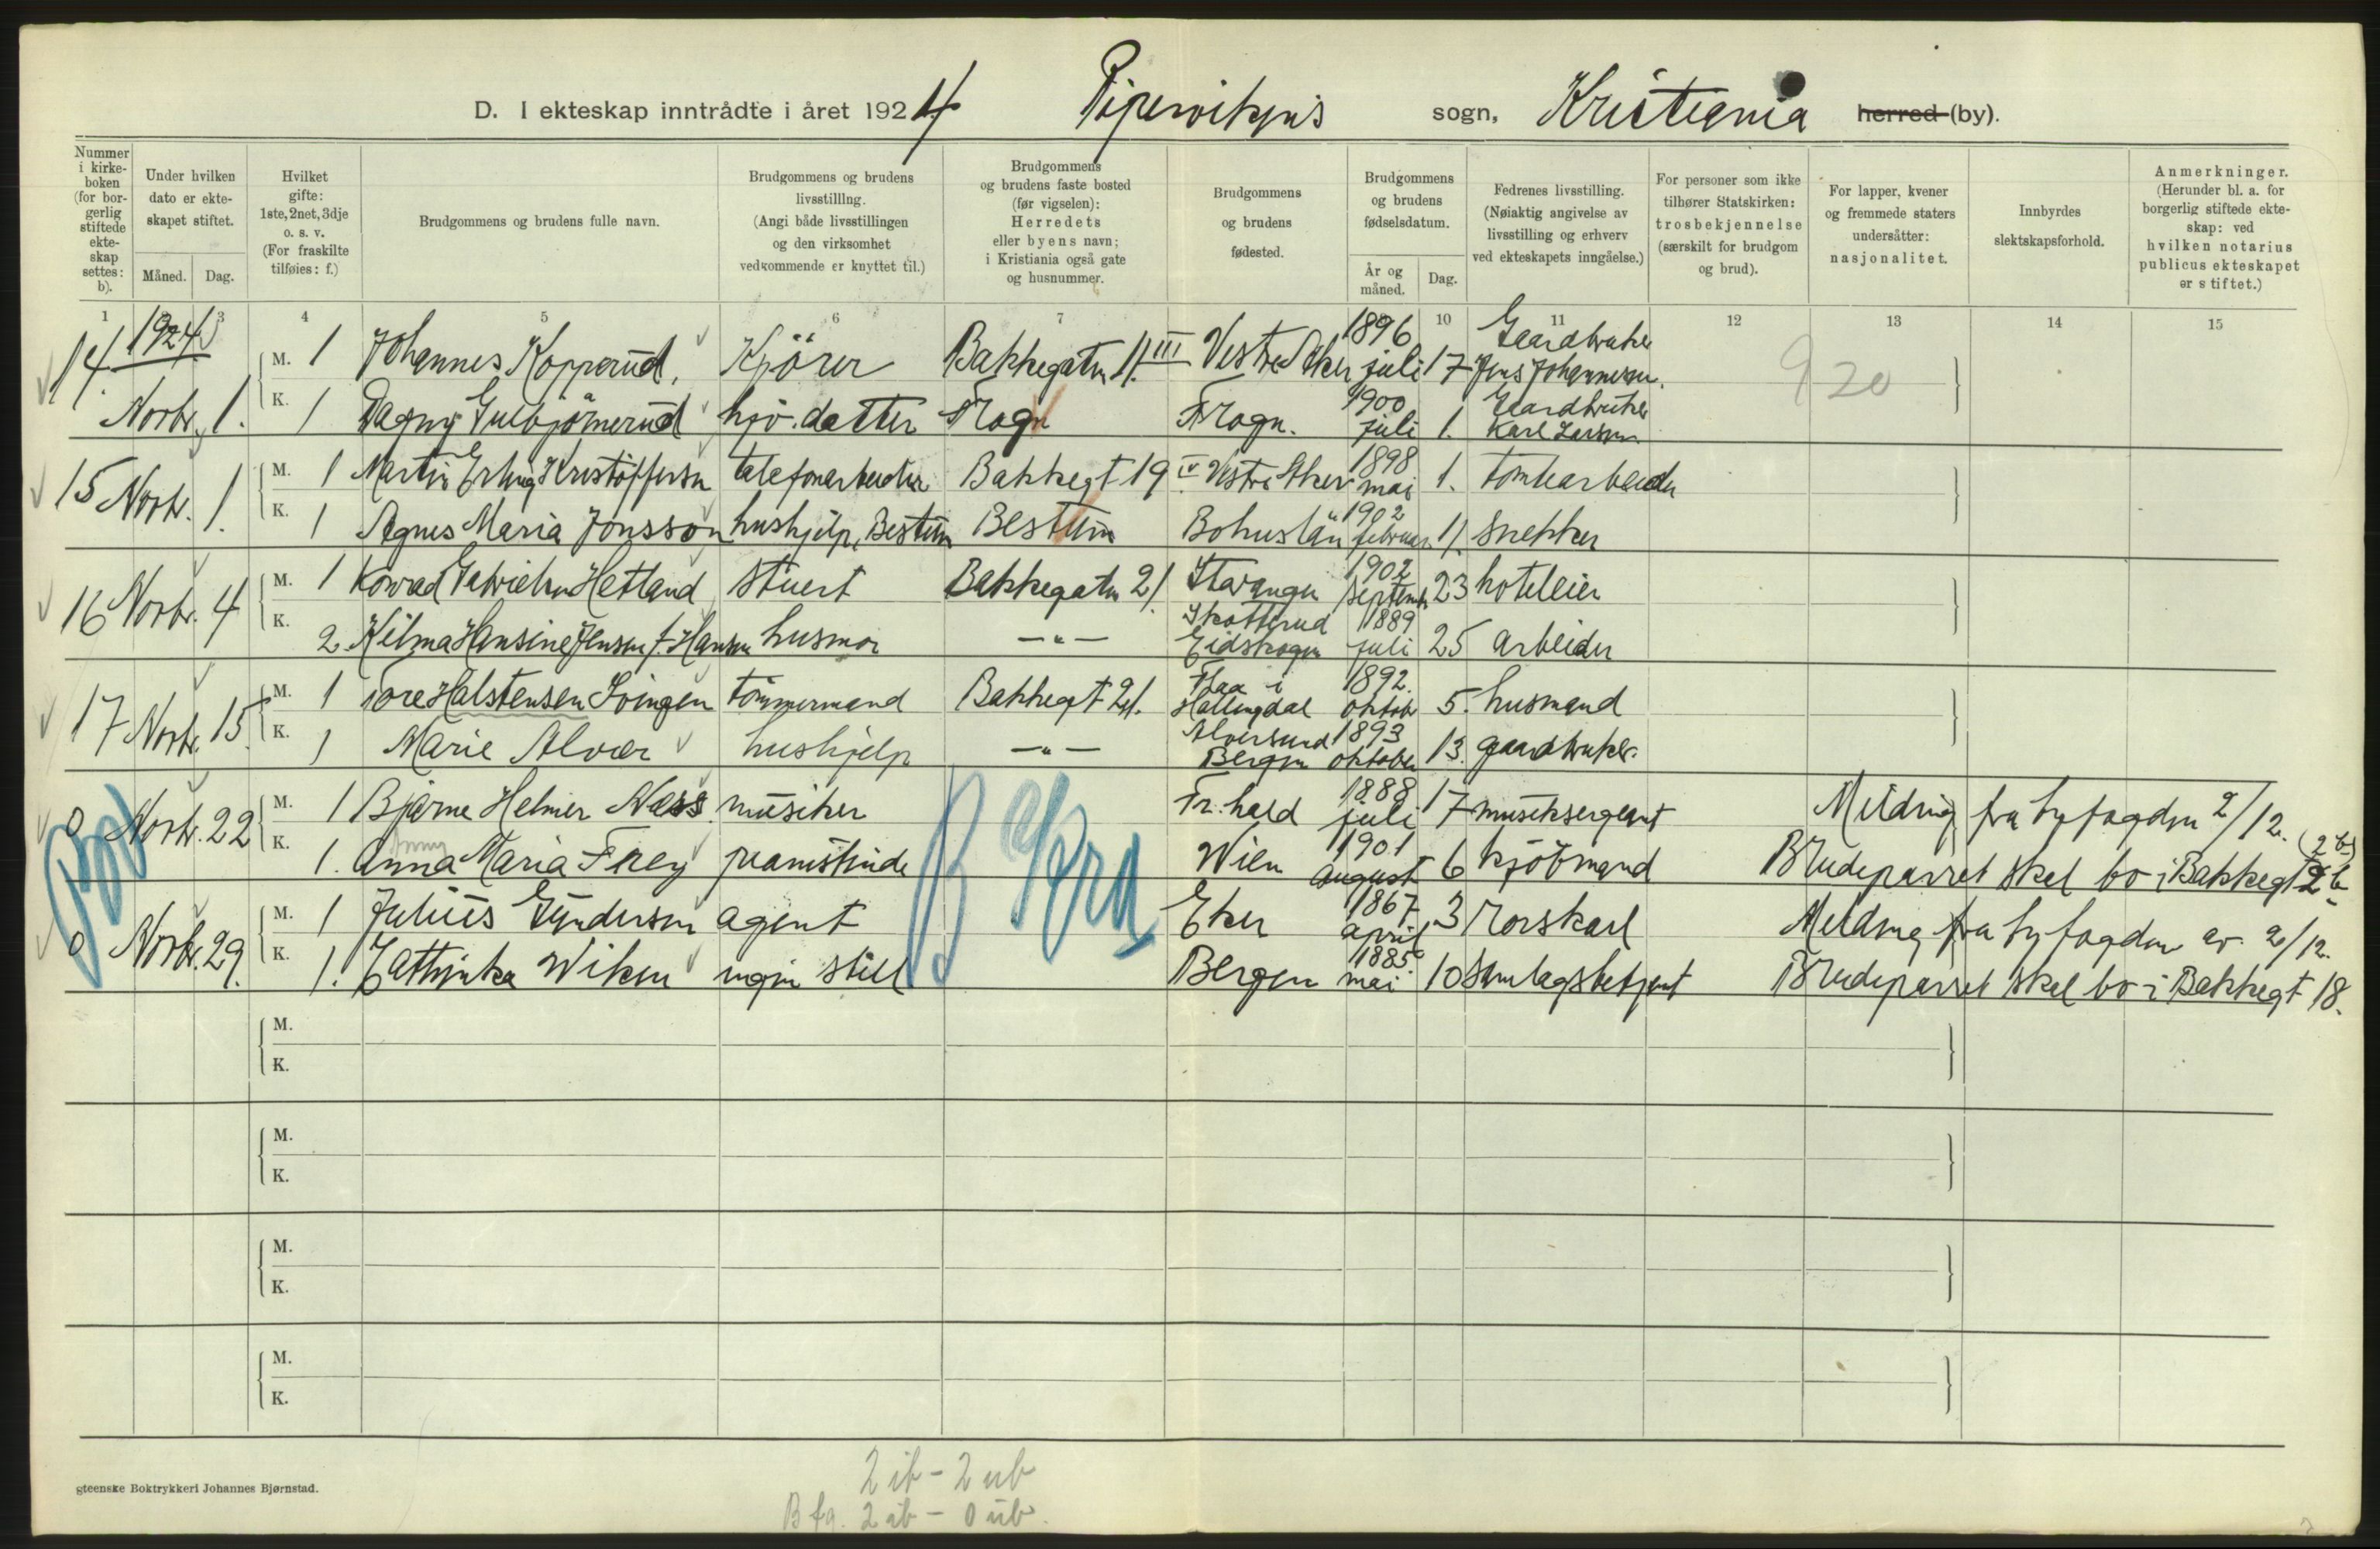 D. I ekteskap inntrådte i året 1924 Pipervikens sogn, Kristiania herred (by).
Nummer i kirke-boken (for bor-gerlig stiftede ekte-skap settes: b).
Under hvilken dato er ekte-skapet stiftet.
Måned. Dag.
Hvilket gifte: 1ste, 2net, 3dje o. s. v. (For fraskilte tilføies: f.)
Brudgommens og brudens fulle navn.
Brudgommens og brudens livsstilling. (Angi både livsstillingen og den virksomhet vedkommende er knyttet til.)
Brudgommens og brudens faste bosted (før vigselen): Herredets eller byens navn; i Kristiania også gate og husnummer.
Brudgommens og brudens fødested.
Brudgommens og brudens fødselsdatum.
År og måned. Dag.
Fedrenes livsstilling. (Nøiaktig angivelse av livsstilling og erhverv ved ekteskapets inngåelse.)
For personer som ikke tilhører Statskirken: trosbekjennelse (særskilt for brudgom og brud).
For lapper, kvener og fremmede staters undersåtter: nasjonalitet.
Innbyrdes slektskapsforhold.
Anmerkninger. (Herunder bl. a. for borgerlig stiftede ekte-skap: ved hvilken notarius publicus ekteskapet er stiftet.)
1 3 4 5 6 7 10 11 12 13 14 15
1924
14 M. 1 Johannes Kopperud, Kjörer Bakkegaten 11 III Vestre Aker 1896 juli 17 Gaardbruker Jens Johannesen. 920
Novbr. 1. K. 1 Dagny Gulbjörnerud hjv. datter Frogn Frogn. 1900 juli 1. Gaardbruker Karl Larsen
15 Novbr. 1. M. 1 Martin Erling Kristoffersen telefonarbeider Bakkegt 19 IV Vestre Aker 1898 mai 1. tomtearbeider
K. 1 Agnes Maria Jonsson hushjelp, Bestum Bestum Bohuslän 1902 februar 11. snekker
16 Novbr. 4 M. 1 Konrad Gabrielsen Hetland stuert Bakkegaten 21. Stavanger 1902 septembr 23 hotelleier
K. 2 Hilma Hansine Jensen f. Hansen husmor —"— Skotterud Eidskogen 1889 juli 25 arbeider
17 Novbr. 15. M. 1 Tore Halstensen Svingen tömmermand Bakkegt 21. Flaa i Hallingdal 1892. oktobr 5. husmand
K. 1 Marie Alver hushjelp —"— Alversund Bergen 1893 oktober 13. gaardbruker.
0 Novbr. 22 M. 1 Bjarne Helmer Ness. musiker Fr. hald 1888 juli 17 musiksergeant Melding fra byfogden 2/12.
K. 1. Anna Maria Frey pianistinde Wien 1901 august 6 kjöbmand Brudeparret skal bo i Bakkegt 2 b
Anny
(2 b)
0 Novbr. 29. M. 1 Julius Gundersen agent Eker 1867 april 3 Rorskarl Melding fra byfogden av 2/12.
K. 1. Cathinka Wiken ingen still Bergen 1885 mai 10 Samlagsbetjent Brudeparret skal bo i Bakkegt 18.
M.
K.
M.
K.
M.
K.
M.
K.
gteenske Boktrykkeri Johannes Bjørnstad.
2 ib - 2 ub
Bfg. 2 ib - 0 ub.